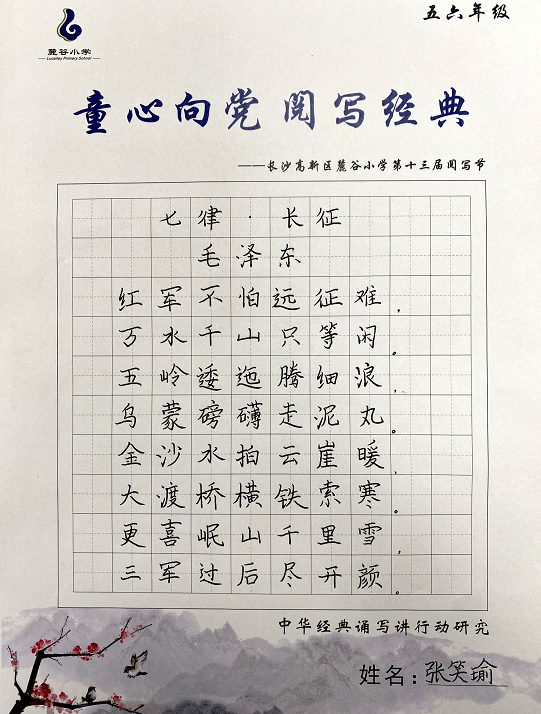 五六年级
麓谷小学
Lucelley Primary School
童心向党 阅写经典
——长沙高新区麓谷小学第十三届阅写节
七律·长征
毛泽东
红军不怕远征难，
万水千山只等闲。
五岭逶迤腾细浪，
乌蒙磅礴走泥丸。
金沙水拍云崖暖，
大渡桥横铁索寒。
更喜岷山千里雪，
三军过后尽开颜。
中华经典诵写讲行动研究
姓名：张笑瑜